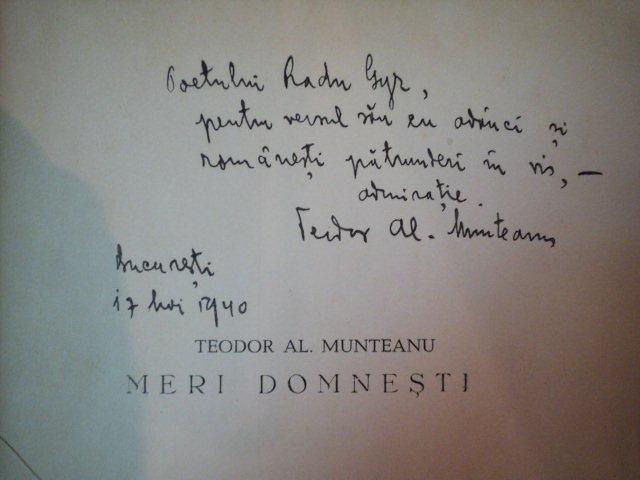 Poetului Radu Gyr,
pentru versul său cu adânci și
românești pătrunderi în vis, —
admirație.
Teodor Al. Munteanu
București
17 Noi 1940
TEODOR AL. MUNTEANU
MERI DOMNEȘTI